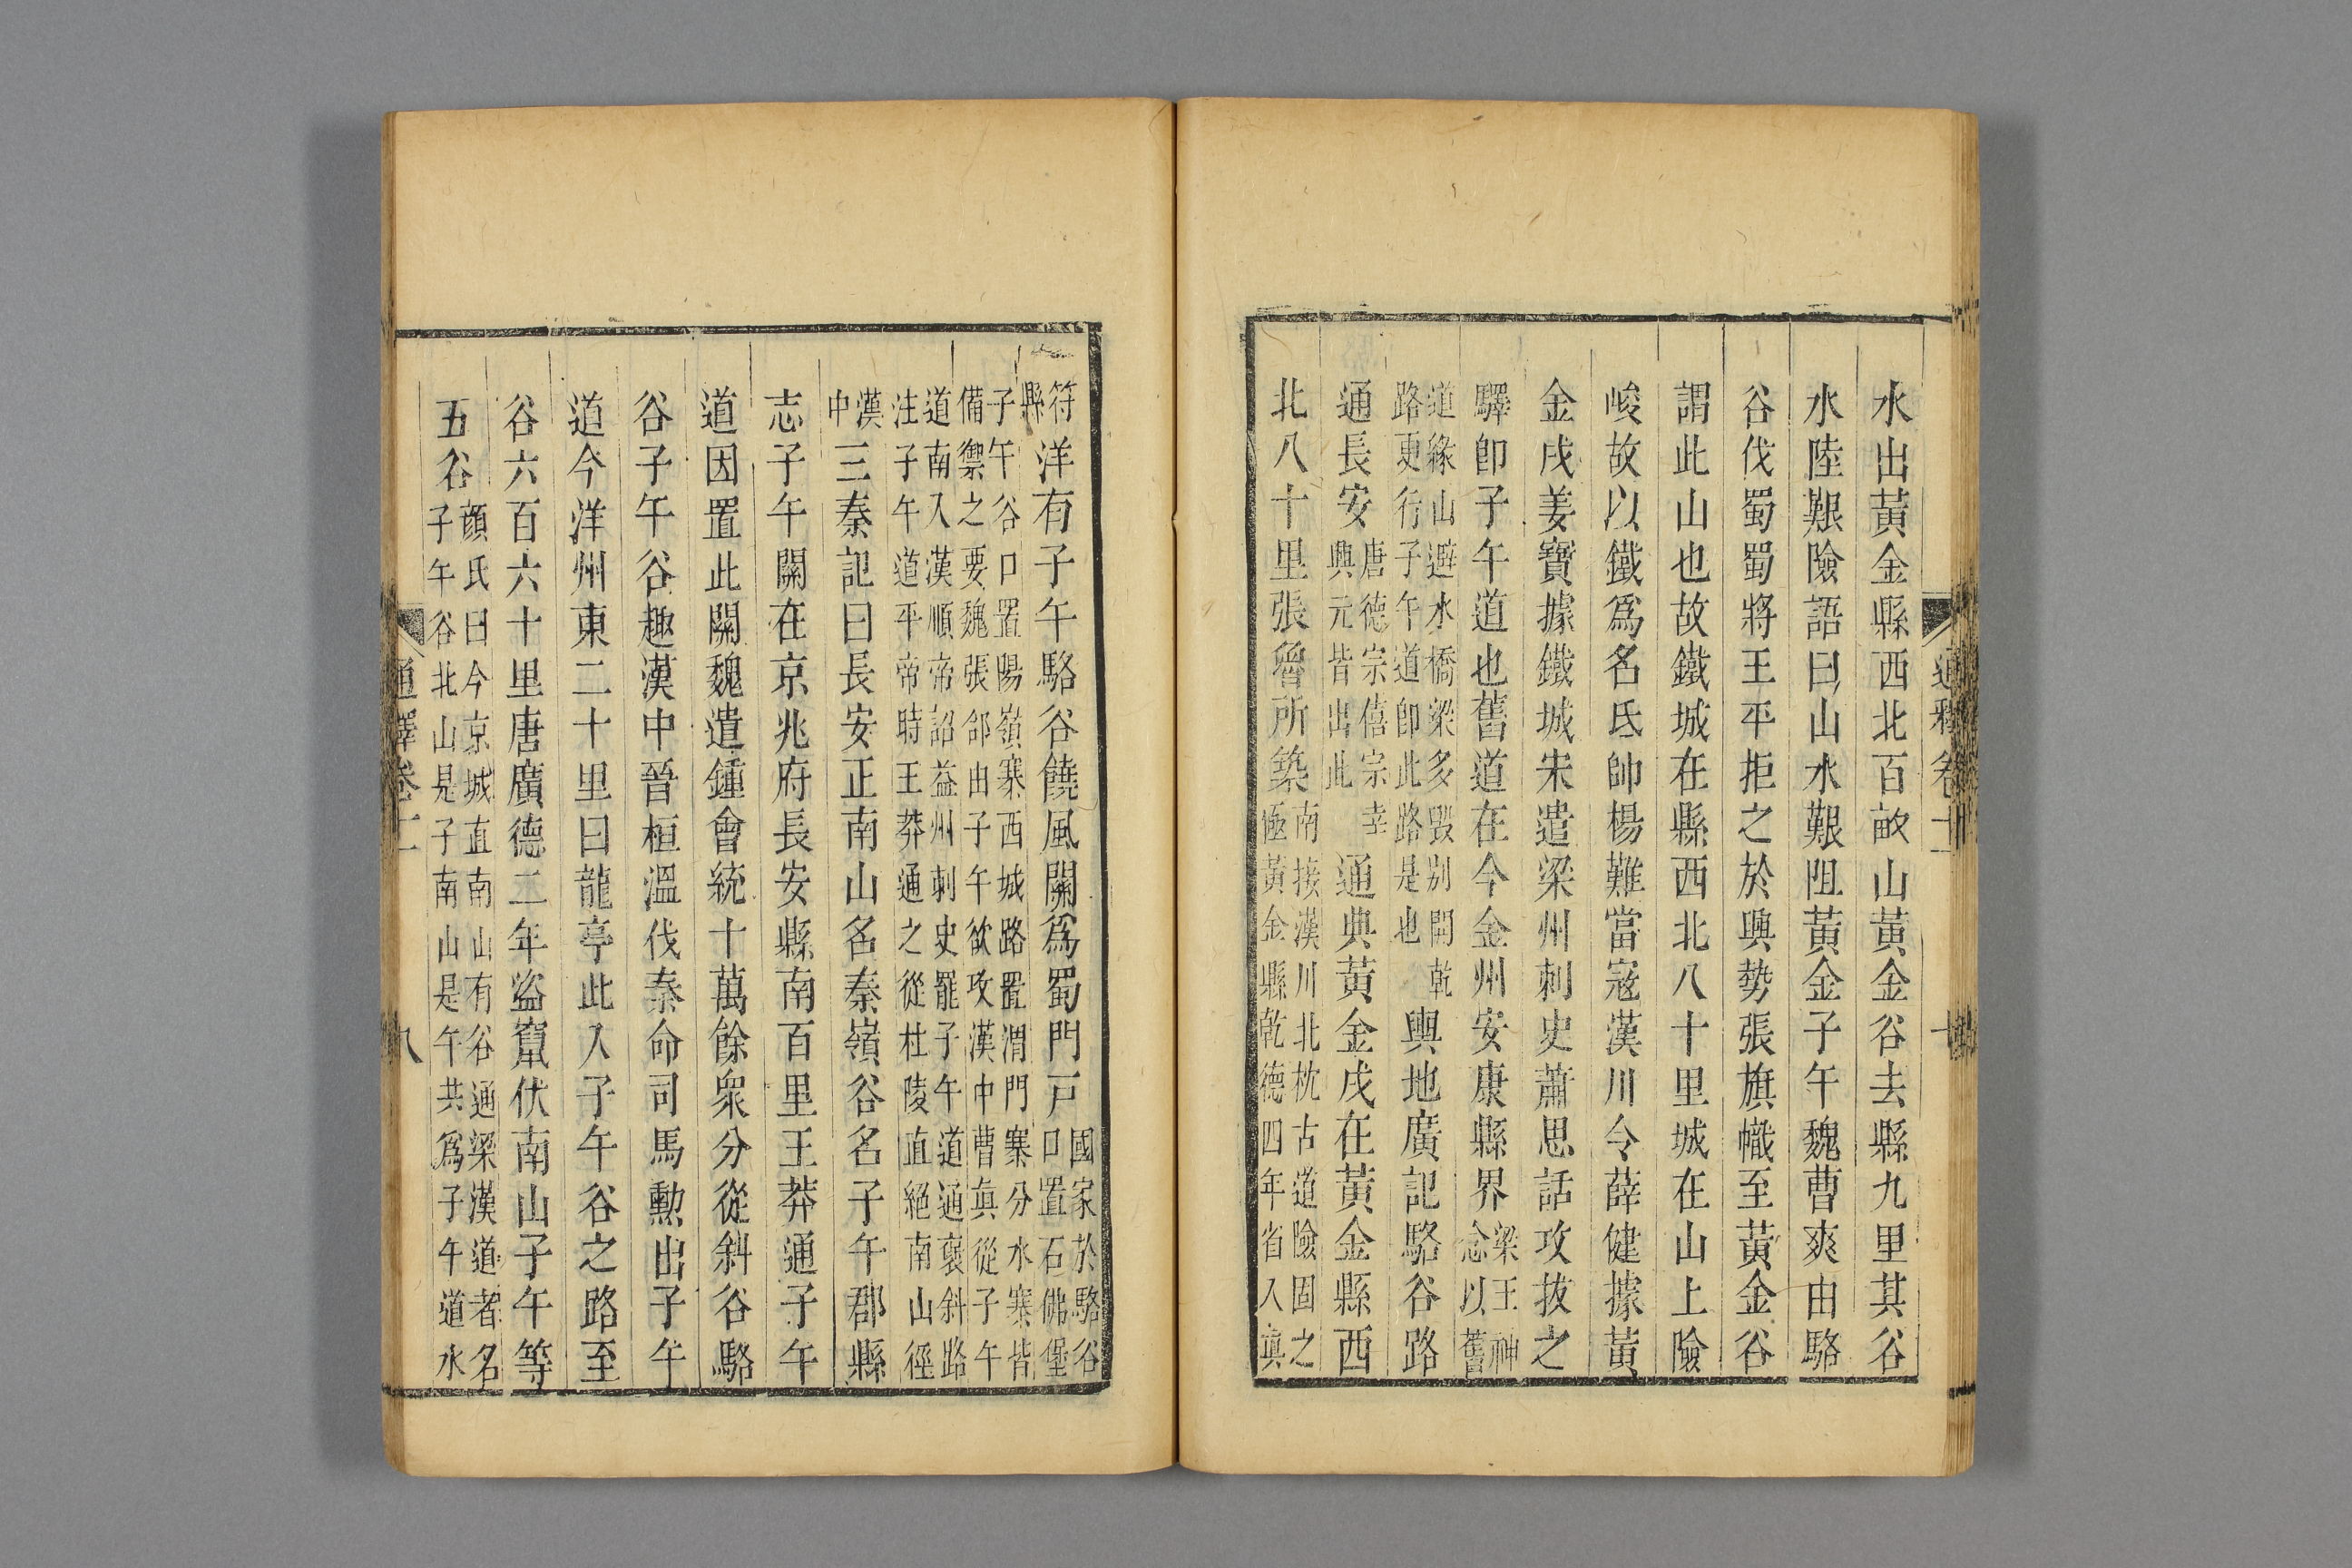 水出黃金縣西北百畝山黃金谷去縣九里其谷
水陸艱險語曰山水艱阻黃金子午魏曹爽由駱
谷伐蜀蜀將王平拒之於興勢張旗幟至黃金谷
謂此山也故鐵城在縣西北八十里城在山上險
峻故以鐵爲名氐帥楊難當寇漢川令薛健據黃
金戍姜寶據鐵城宋遣梁州刺史蕭思話攻拔之
驛卽子午道也舊道在今金州安康縣界
梁王神
念以舊
道緣山避水橋梁多毀别開乾
路更行子午道卽此路是也
輿地廣記駱谷路
通長安
唐德宗僖宗幸
興元皆出此
通典黃金戍在黃金縣西
北八十里張魯所築
南接漢川北枕古道險固之
極黃金縣乾德四年省入眞
符
縣
洋有子午駱谷饒風關爲蜀門戸
國家於駱谷
口置石佛堡
子午谷口置陽嶺寨西城路置渭門寨分水寨皆
備禦之要魏張郃由子午欲攻漢中曹眞從子午
道南入漢順帝詔益州刺史罷子午道通褒斜路
注子午道平帝時王莽通之從杜陵直絕南山徑
漢
中
三秦記曰長安正南山名秦嶺谷名子午郡縣
志子午關在京兆府長安縣南百里王莽通子午
道因置此關魏遣鍾會統十萬餘衆分從斜谷駱
谷子午谷趣漢中晉桓溫伐秦命司馬勳出子午
道今洋州東二十里曰龍亭此入子午谷之路至
谷六百六十里唐廣德二年盜竄伏南山子午等
五谷
顏氏曰今京城直南山有谷通梁漢道者名
子午谷北山是子南山是午共爲子午道水
通釋卷十二
八